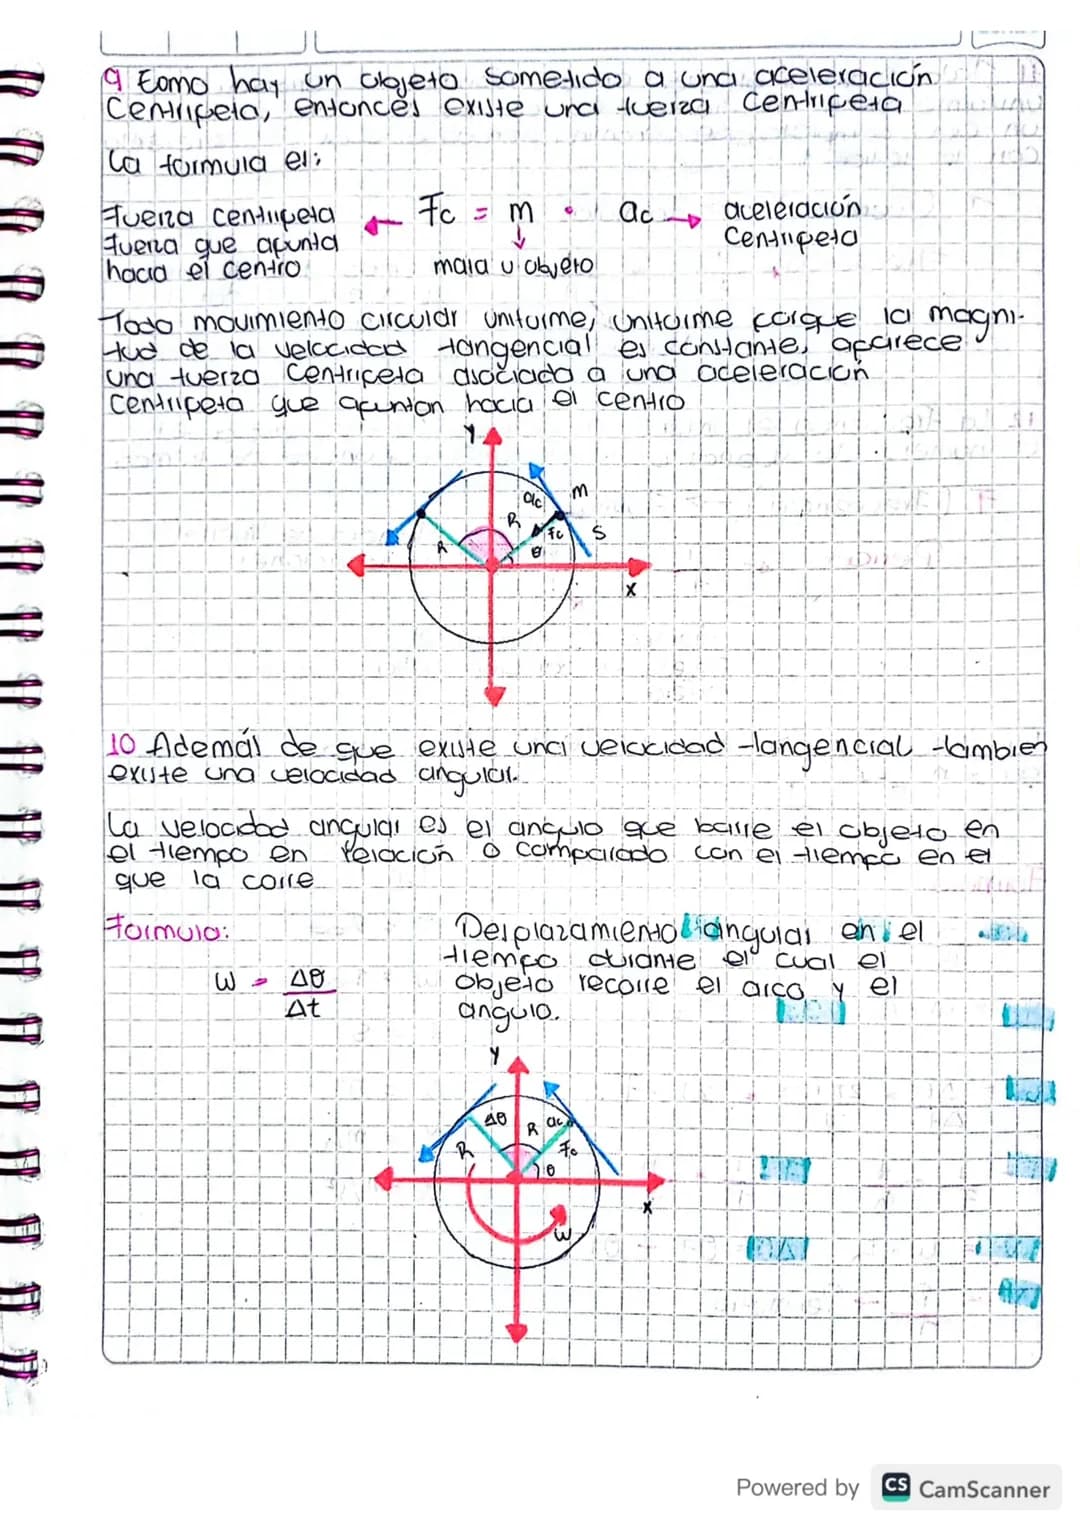 9 Como hay un objeto sometido a una aceleración
Centripeta, entonces existe una fuerza centripeta
La formula es:
Fuerza centripeta ← Fc = m • ac → aceleración
Fuerza que apunta
hacia el centro
Centripeta
masa u objeto
Todo movimiento circular uniforme, uniforme porque la magni-
tud de la velocidad tangencial es constante, aparece
una fuerza centripeta asociada a una aceleración
centripeta que apuntan hacia el centro
Y
ac
m
R
Fc
S
R
θ
X
10 Además de que existe una velocidad tangencial tambien
existe una velocidad angular.
La velocidad angular es el angulo que barre el objeto en
el tiempo en relación o comparado con el tiempo en el
que la corre
Formula:
ω = Δθ
Δt
Desplazamiento angular en el
tiempo durante el cual el
objeto recorre el arco y el
angulo.
Y
Δθ
R
ac
R
Fc
θ
X
ω
Powered by CS CamScanner